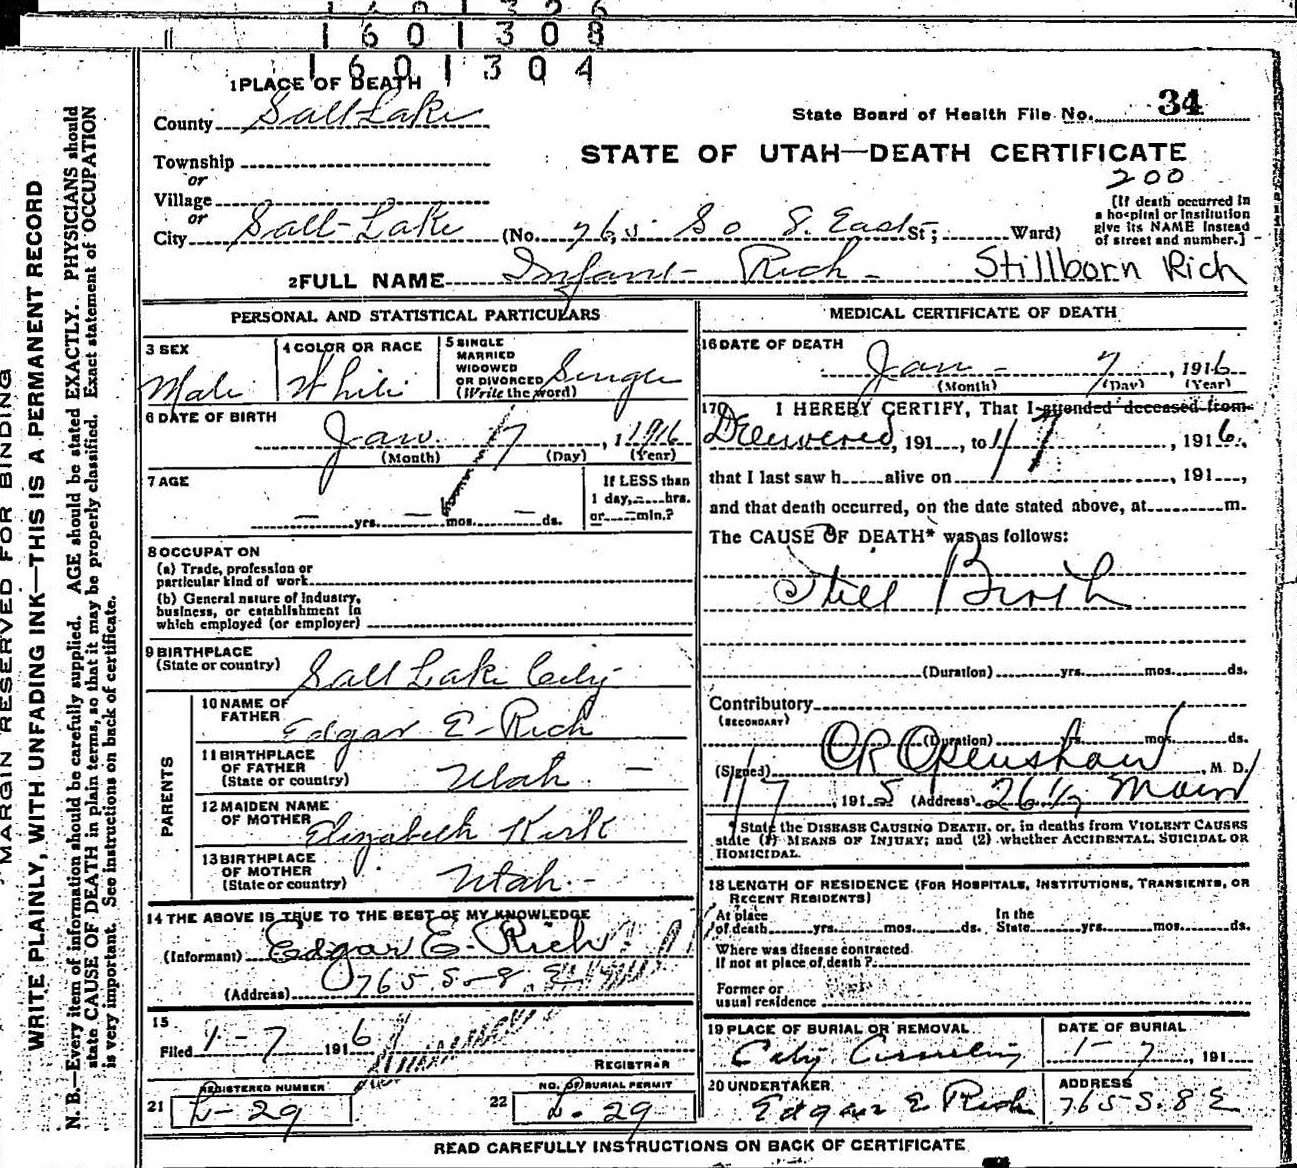 1 6 0 1 3 2 6
1 6 0 1 3 0 8
1 6 0 1 3 0 4
MARGIN RESERVED FOR BINDING
WRITE PLAINLY, WITH UNFADING INK—THIS IS A PERMANENT RECORD
N. B.—Every item of information should be carefully supplied. AGE should be stated EXACTLY. PHYSICIANS should
state CAUSE OF DEATH in plain terms, so that it may be properly classified. Exact statement of OCCUPATION
is very important. See instructions on back of certificate.
1 PLACE OF DEATH
County Salt Lake
State Board of Health File No. 34
Township
or
Village
or
STATE OF UTAH—DEATH CERTIFICATE
200
City Salt-Lake (No. 765 So 8. East St; Ward)
[If death occurred in
a hospital or institution
give its NAME instead
of street and number.]
2 FULL NAME Infant- Rich - Stillborn Rich
PERSONAL AND STATISTICAL PARTICULARS
3 SEX
Male
4 COLOR OR RACE
White
5 SINGLE
MARRIED
WIDOWED
OR DIVORCED
(Write the word)
Single
6 DATE OF BIRTH
Jan. 7, 1916
(Month) (Day) (Year)
7 AGE
— yrs. — mos. — ds.
If LESS than
1 day, — hrs.
or — min.?
8 OCCUPATION
(a) Trade, profession or
particular kind of work
(b) General nature of industry,
business, or establishment in
which employed (or employer)
9 BIRTHPLACE
(State or country) Salt Lake City
PARENTS
10 NAME OF
FATHER Edgar E- Rich
11 BIRTHPLACE
OF FATHER
(State or country) Utah. —
12 MAIDEN NAME
OF MOTHER Elizabeth Kirk
13 BIRTHPLACE
OF MOTHER
(State or country) Utah. -
14 THE ABOVE IS TRUE TO THE BEST OF MY KNOWLEDGE
(Informant) Edgar E. Rich
(Address) 765 S-8 E
15
Filed 1-7 1916
REGISTRAR
21 REGISTERED NUMBER
L-29
22 NO. OF BURIAL PERMIT
L-29
MEDICAL CERTIFICATE OF DEATH
16 DATE OF DEATH
Jan - 7, 1916
(Month) (Day) (Year)
17 I HEREBY CERTIFY, That I attended deceased from
Delivered, 191, to 1/7, 1916.
that I last saw h alive on, 191,
and that death occurred, on the date stated above, at m.
The CAUSE OF DEATH* was as follows:
Still Birth
(Duration) yrs. mos. ds.
Contributory
(SECONDARY)
(Duration) yrs. mos. ds.
(Signed) OR Openshaw, M. D.
1/7, 1915 (Address) 26 1/2 Main
* State the DISEASE CAUSING DEATH, or, in deaths from VIOLENT CAUSES
state (1) MEANS OF INJURY; and (2) whether ACCIDENTAL, SUICIDAL OR
HOMICIDAL.
18 LENGTH OF RESIDENCE (FOR HOSPITALS, INSTITUTIONS, TRANSIENTS, OR
RECENT RESIDENTS)
At place
of death yrs. mos. ds.
In the
State yrs. mos. ds.
Where was disease contracted
If not at place of death?
Former or
usual residence
19 PLACE OF BURIAL OR REMOVAL
City Cemetery
DATE OF BURIAL
1-7, 191
20 UNDERTAKER
Edgar E Rich
ADDRESS
765 S. 8 E
READ CAREFULLY INSTRUCTIONS ON BACK OF CERTIFICATE